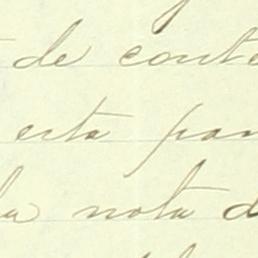 de conte
esta par
la nota d